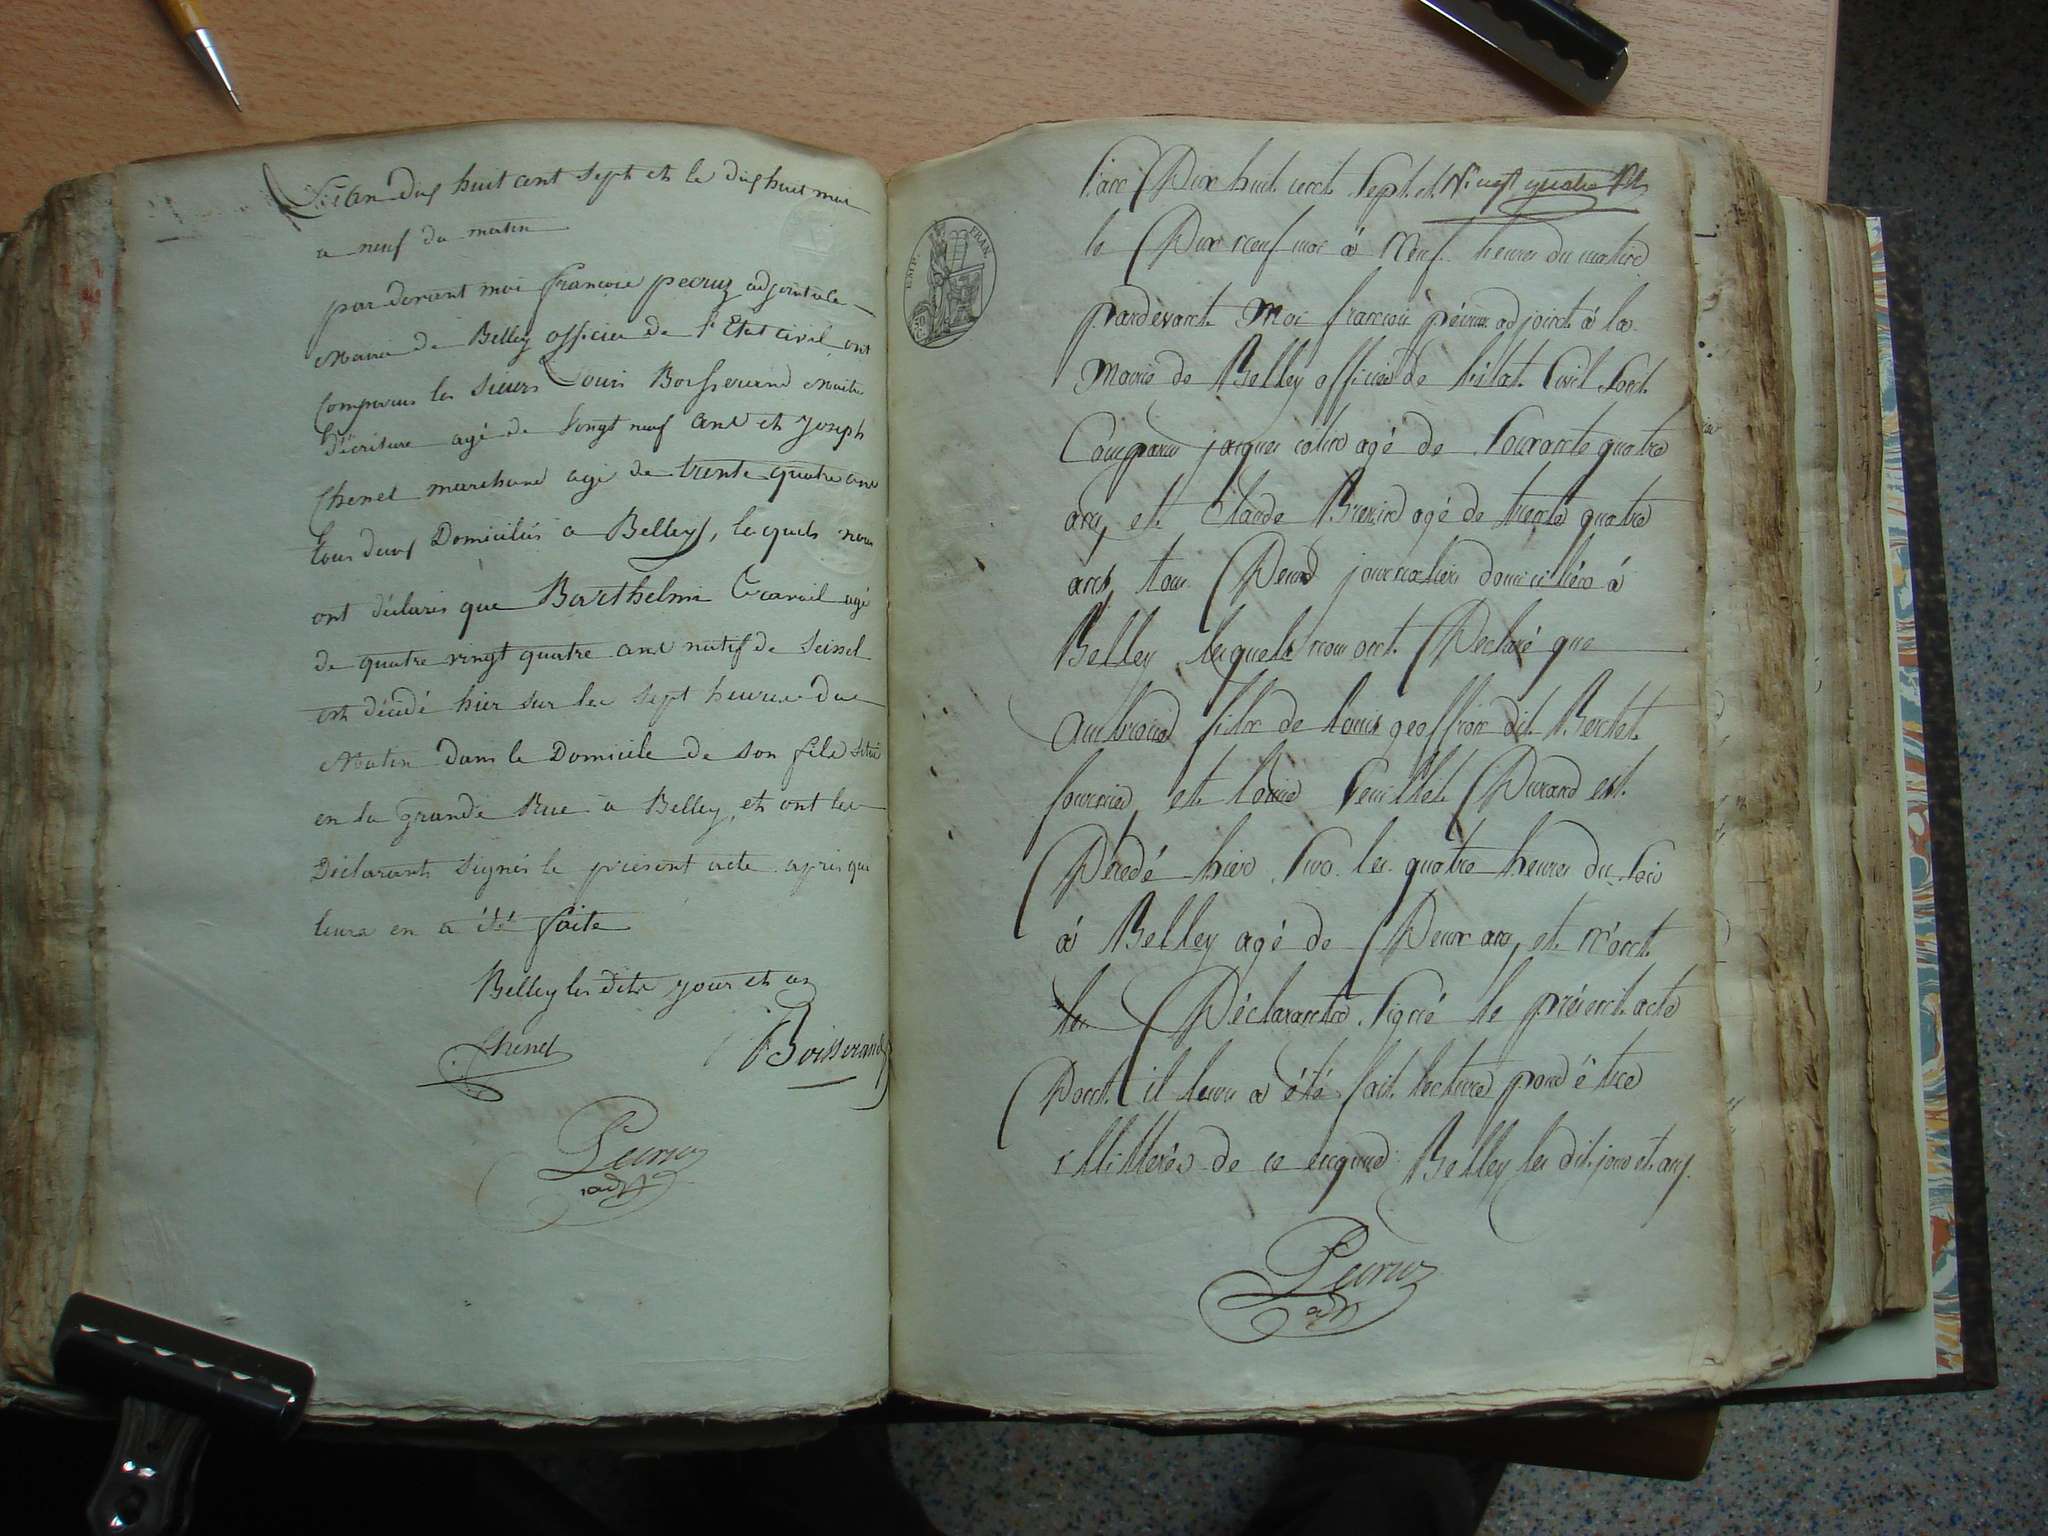 L'an dix huit cent sept et le dix huit mai
a neuf du matin
par devant moi françois pecruz adjoint a la
Mairie de Belley officier de l'Etat civil, ont
Comparus les sieurs Louis Boisserand Maitre
d'écriture agé de Vingt neuf ans et Joseph
Chenet marchand agé de trente quatre ans
tous deux Domiciliés a Belley, lesquels nous
ont déclarés que Barthelmi agé
de quatre vingt quatre ans natif de Seissel
est décédé hier sur les sept heures du
Matin dans le Domicile de son fils situé
en la grande Rue a Belley, et ont les
Déclarants signés le présent acte apres que
leurs en a été faite
Belley les dits jour et an
Chenet Boisserand
Pecruz
adjt
EMP. FRAN.
l'an Dix huit cent Sept et Vingt quatre
le Dix neuf mai à Neuf heures du matin
pardevant Moi francois pécruz adjoint à la
Mairie de Belley officier de l'état Civil Sont
Comparu jacques agé de Soixante quatre
ans, et Claude agé de trente quatre
ans, tous Deux journaliers domicilliés à
Belley lesquels nous ont Declaré que
fils de louis geoffroi dit Berthet
et louise Durand est
Décedé hier Sur les quatre heures du Soir
à Belley agé de Deux ans, et n'ont
les Déclarants Signé le présent acte
Dont il leurs a été fait lecture pour être
illitterés de ce enquis Belley les dit jour et an
Pecruz
adjt